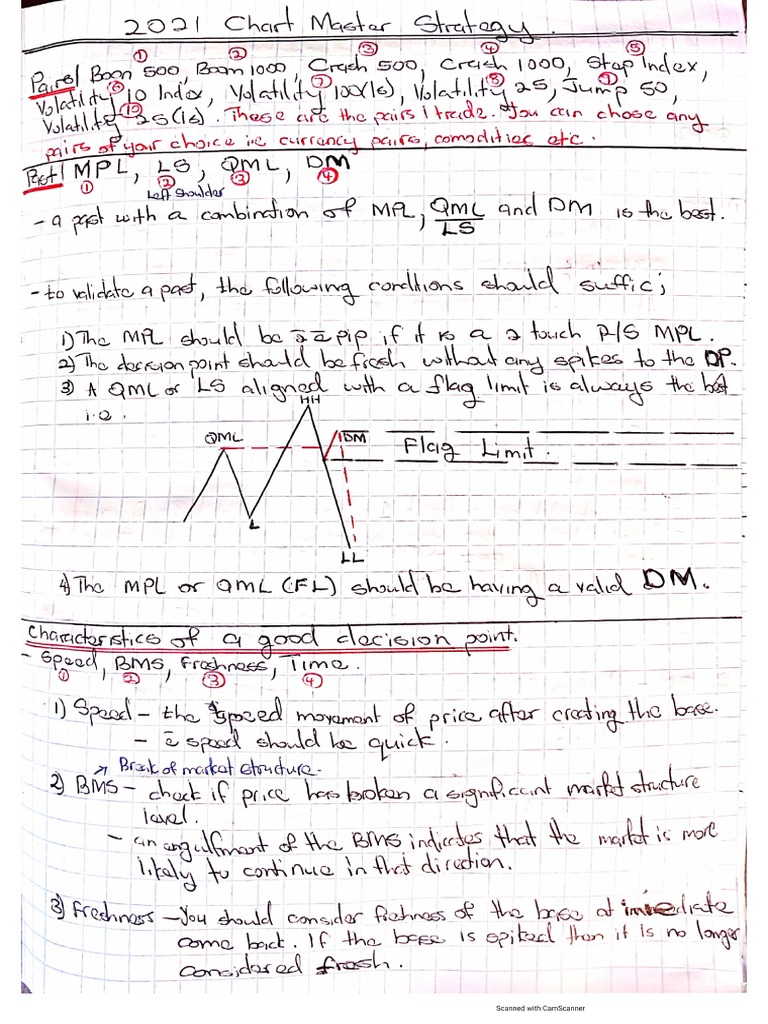 2021 Chart Master Strategy.
① ② ③ ④ ⑤
Pairs| Boom 500, Boom 1000, Crash 500, Crash 1000, Step Index,
⑥ ⑦ ⑧ ⑨
Volatility 10 Index, Volatility 100(1s), Volatility 25, Jump 50,
⑩
Volatility 25(1s). These are the pairs I trade. You can chose any
pairs of your choice i.e currency pairs, comodities etc.
Past| MPL, LS, QML, DM
① ② ③ ④
Left Shoulder
- a past with a combination of MPL, QML/LS and DM is the best.
- to validate a past, the following conditions should suffic;
1) The MPL should be a pip if it is a 2 touch R/S MPL.
2) The decision point should be fresh without any spikes to the DP.
3) A QML or LS aligned with a flag limit is always the best
i.e.
HH
QML DM Flag Limit.
L
LL
4) The MPL or QML (FL) should be having a valid DM.
Characteristics of a good decision point.
- Speed, BMS, Freshness, Time.
① ② ③ ④
1) Speed - the speed movement of price after creating the base.
- speed should be quick.
Break of market structure.
2) BMS - check if price has broken a significant market structure
level.
- an engulfment of the BMS indicates that the market is more
likely to continue in that direction.
3) Freshness - You should consider freshness of the base at immediate
come back. If the base is spiked then it is no longer
considered fresh.
Scanned with CamScanner